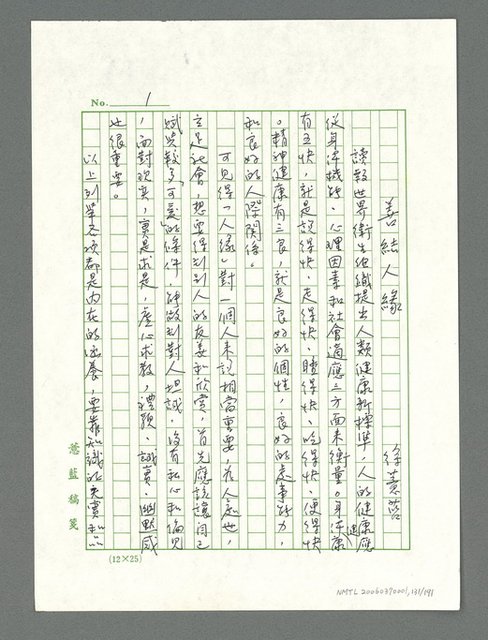 No. 1
善結人緣
徐薏藍
讀報世界衛生組織提出人類健康新標準，人的健康應
從身體機能、心理因素和社會適應三方面來衡量。身體健康
有五快，就是說得快、走得快、睡得快、吃得快、便得快
。精神健康有三良，就是良好的個性，良好的處事能力，
和良好的人際關係。
可見得「人緣」對一個人來說相當重要，在人處世，
立足社會，想要得到別人的友善和欣賞，首先應該讓自己
賦與較多「可愛」的條件，能做到對人坦誠、沒有私心和偏見
，面對現實，實是求是，虛心求教，禮貌、誠實、幽默感
也很重要。
以上列舉各項都是內在的涵養，要靠知識的充實和品
薏藍稿箋
(12×25)
NMTL 20060370001, 131/141